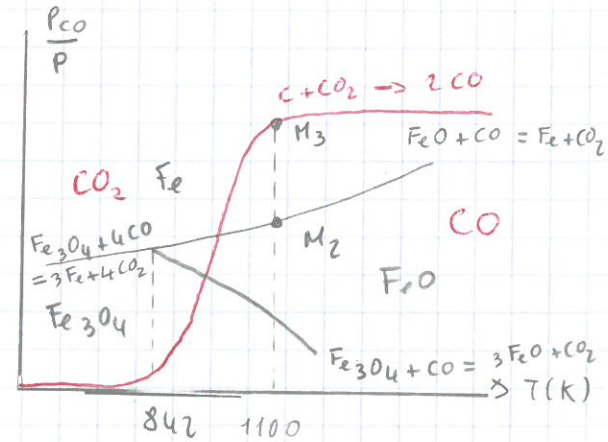 P_CO
P
C + CO₂ → 2 CO
M₃
FeO + CO = Fe + CO₂
CO₂ Fe
CO
Fe₃O₄ + 4CO
= 3Fe + 4CO₂
M₂
FeO
Fe₃O₄
Fe₃O₄ + CO = 3FeO + CO₂
T(K)
842 1100